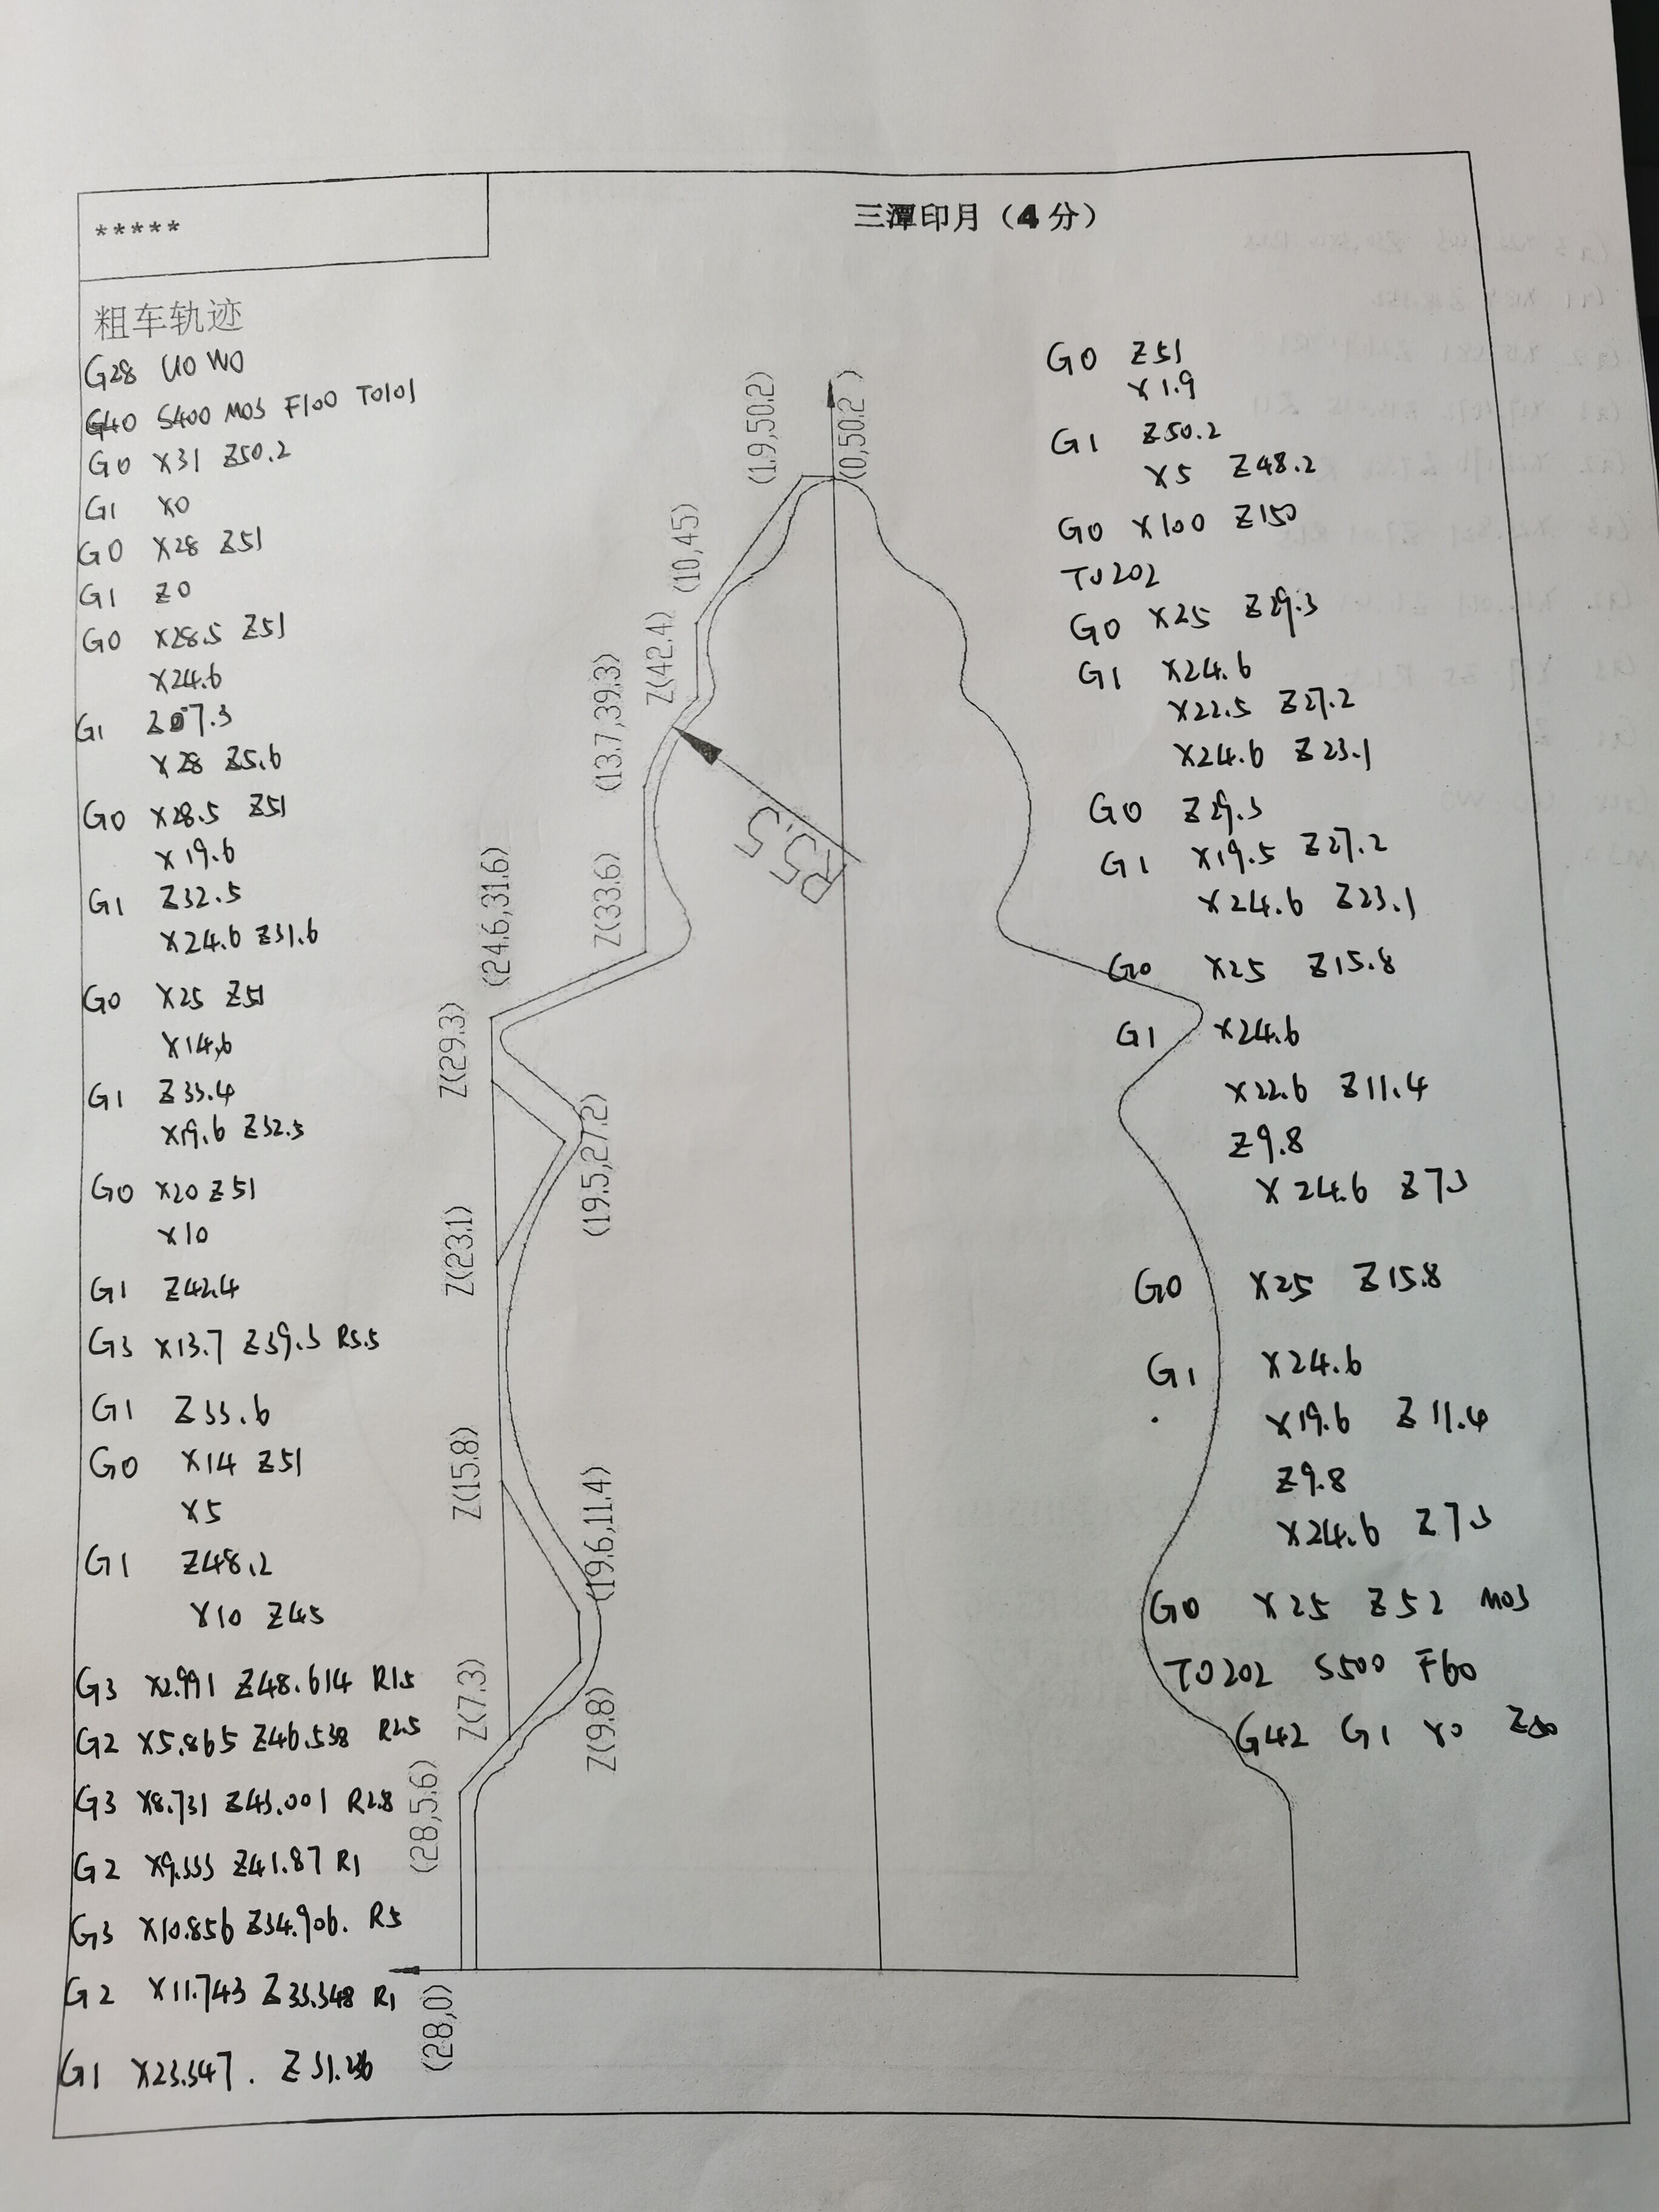 *****
三潭印月（4分）
粗车轨迹
G28 U0 W0
G40 S400 M03 F100 T0101
G0 X31 Z50.2
G1 X0
G0 X28 Z51
G1 Z0
G0 X28.5 Z51
X24.6
G1 Z7.3
X28 Z5.6
G0 X28.5 Z51
X19.6
G1 Z32.5
X24.6 Z31.6
G0 X25 Z51
X14.6
G1 Z33.4
X19.6 Z32.5
G0 X20 Z51
X10
G1 Z42.4
G3 X13.7 Z39.3 R5.5
G1 Z33.6
G0 X14 Z51
X5
G1 Z48.2
X10 Z45
G3 X2.991 Z48.614 R1.5
G2 X5.865 Z46.538 R2.5
G3 X8.731 Z43.001 R2.8
G2 X9.333 Z41.87 R1
G3 X10.856 Z34.906. R5
G2 X11.743 Z33.348 R1
G1 X23.347. Z31.26
(1.9,50.2)
(0,50.2)
(10,45)
Z(42.4)
(13.7,39.3)
R5.5
Z(33.6)
(24.6,31.6)
Z(29.3)
(19.5,27.2)
Z(23.1)
Z(15.8)
(19.6,11.4)
Z(9.8)
Z(7.3)
(28,5.6)
(28,0)
G0 Z51
X1.9
G1 Z50.2
X5 Z48.2
G0 X100 Z150
T0202
G0 X25 Z29.3
G1 X24.6
X22.5 Z27.2
X24.6 Z23.1
G0 Z29.3
G1 X19.5 Z27.2
X24.6 Z23.1
G0 X25 Z15.8
G1 X24.6
X22.6 Z11.4
Z9.8
X24.6 Z7.3
G0 X25 Z15.8
G1 X24.6
X19.6 Z11.4
Z9.8
X24.6 Z7.3
G0 X25 Z52 M03
T0202 S500 F60
G42 G1 X0 Z50